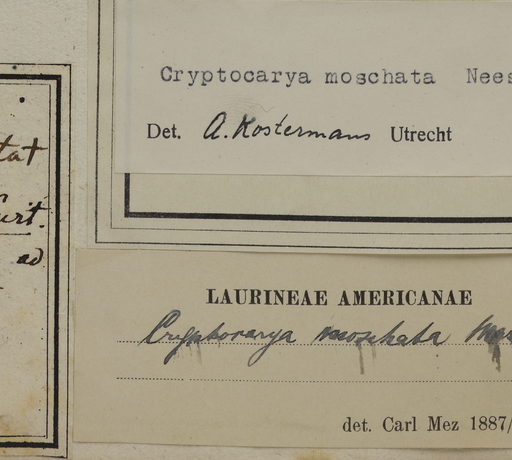 Cryptocarya moschata Nees
Det. A. Kostermans Utrecht
tat
ad
LAURINEAE AMERICANAE
Cryptocarya moschata
det. Carl Mez 1887/